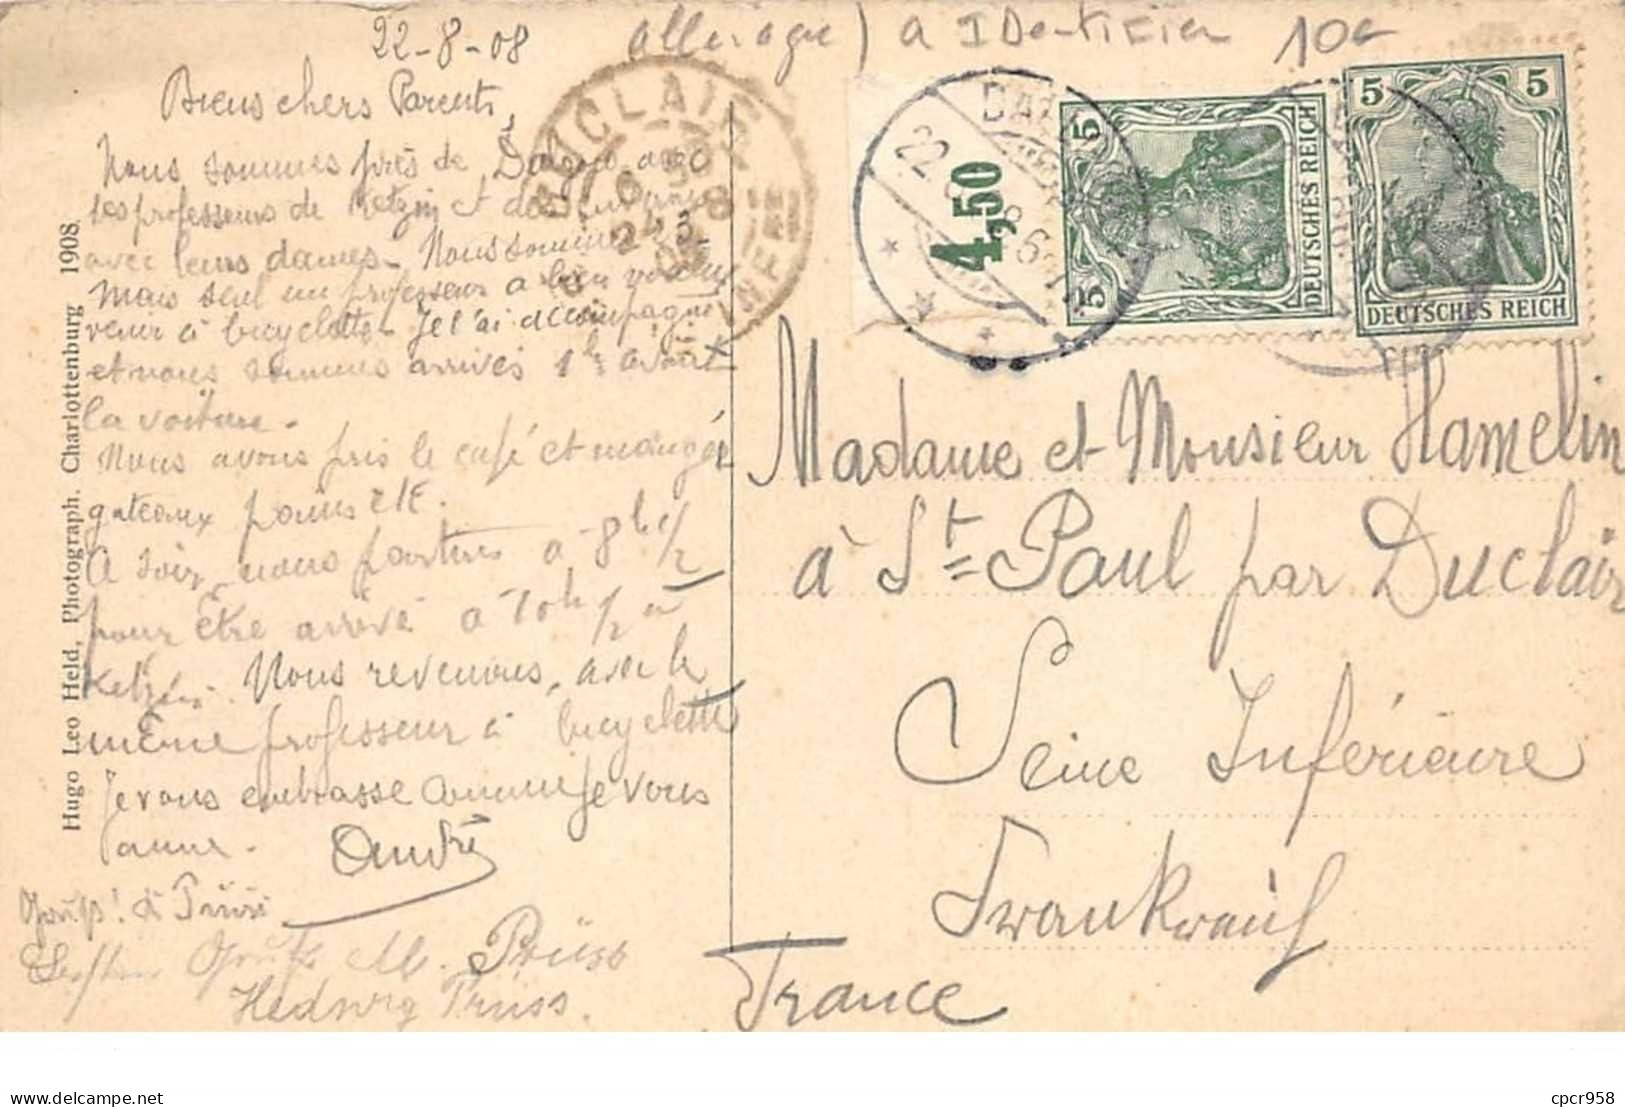 22-8-08
a IDentifier 10e
Biens chers Parents,
Nous sommes près de
les professeurs de Ketzin et
avec leurs dames. Nous sommes 23.
Mais seul un professeur a bien voulu
venir à bicyclette. Je l'ai accompagné
et nous sommes arrivés 1h avant
la voiture.
Nous avons pris le café et mangé
gateaux pains etc.
A soir, nous partons à 8h 1/2
pour être arrivé à 10h 1/2 à
Ketzin. Nous revenons, avec le
même professeur à bicyclette
Je vous embrasse comme je vous
aime.
André
M. Prüss
Hedwig Prüss.
Hugo Leo Held, Photograph, Charlottenburg 1908.
DUCLAIR
22.
4,50
5 5
DEUTSCHES REICH
5 5
DEUTSCHES REICH
Madame et Monsieur Hamelin
à St= Paul par Duclair
Seine Inférieure
Frankreich
France
delcampe.net
cpcr958